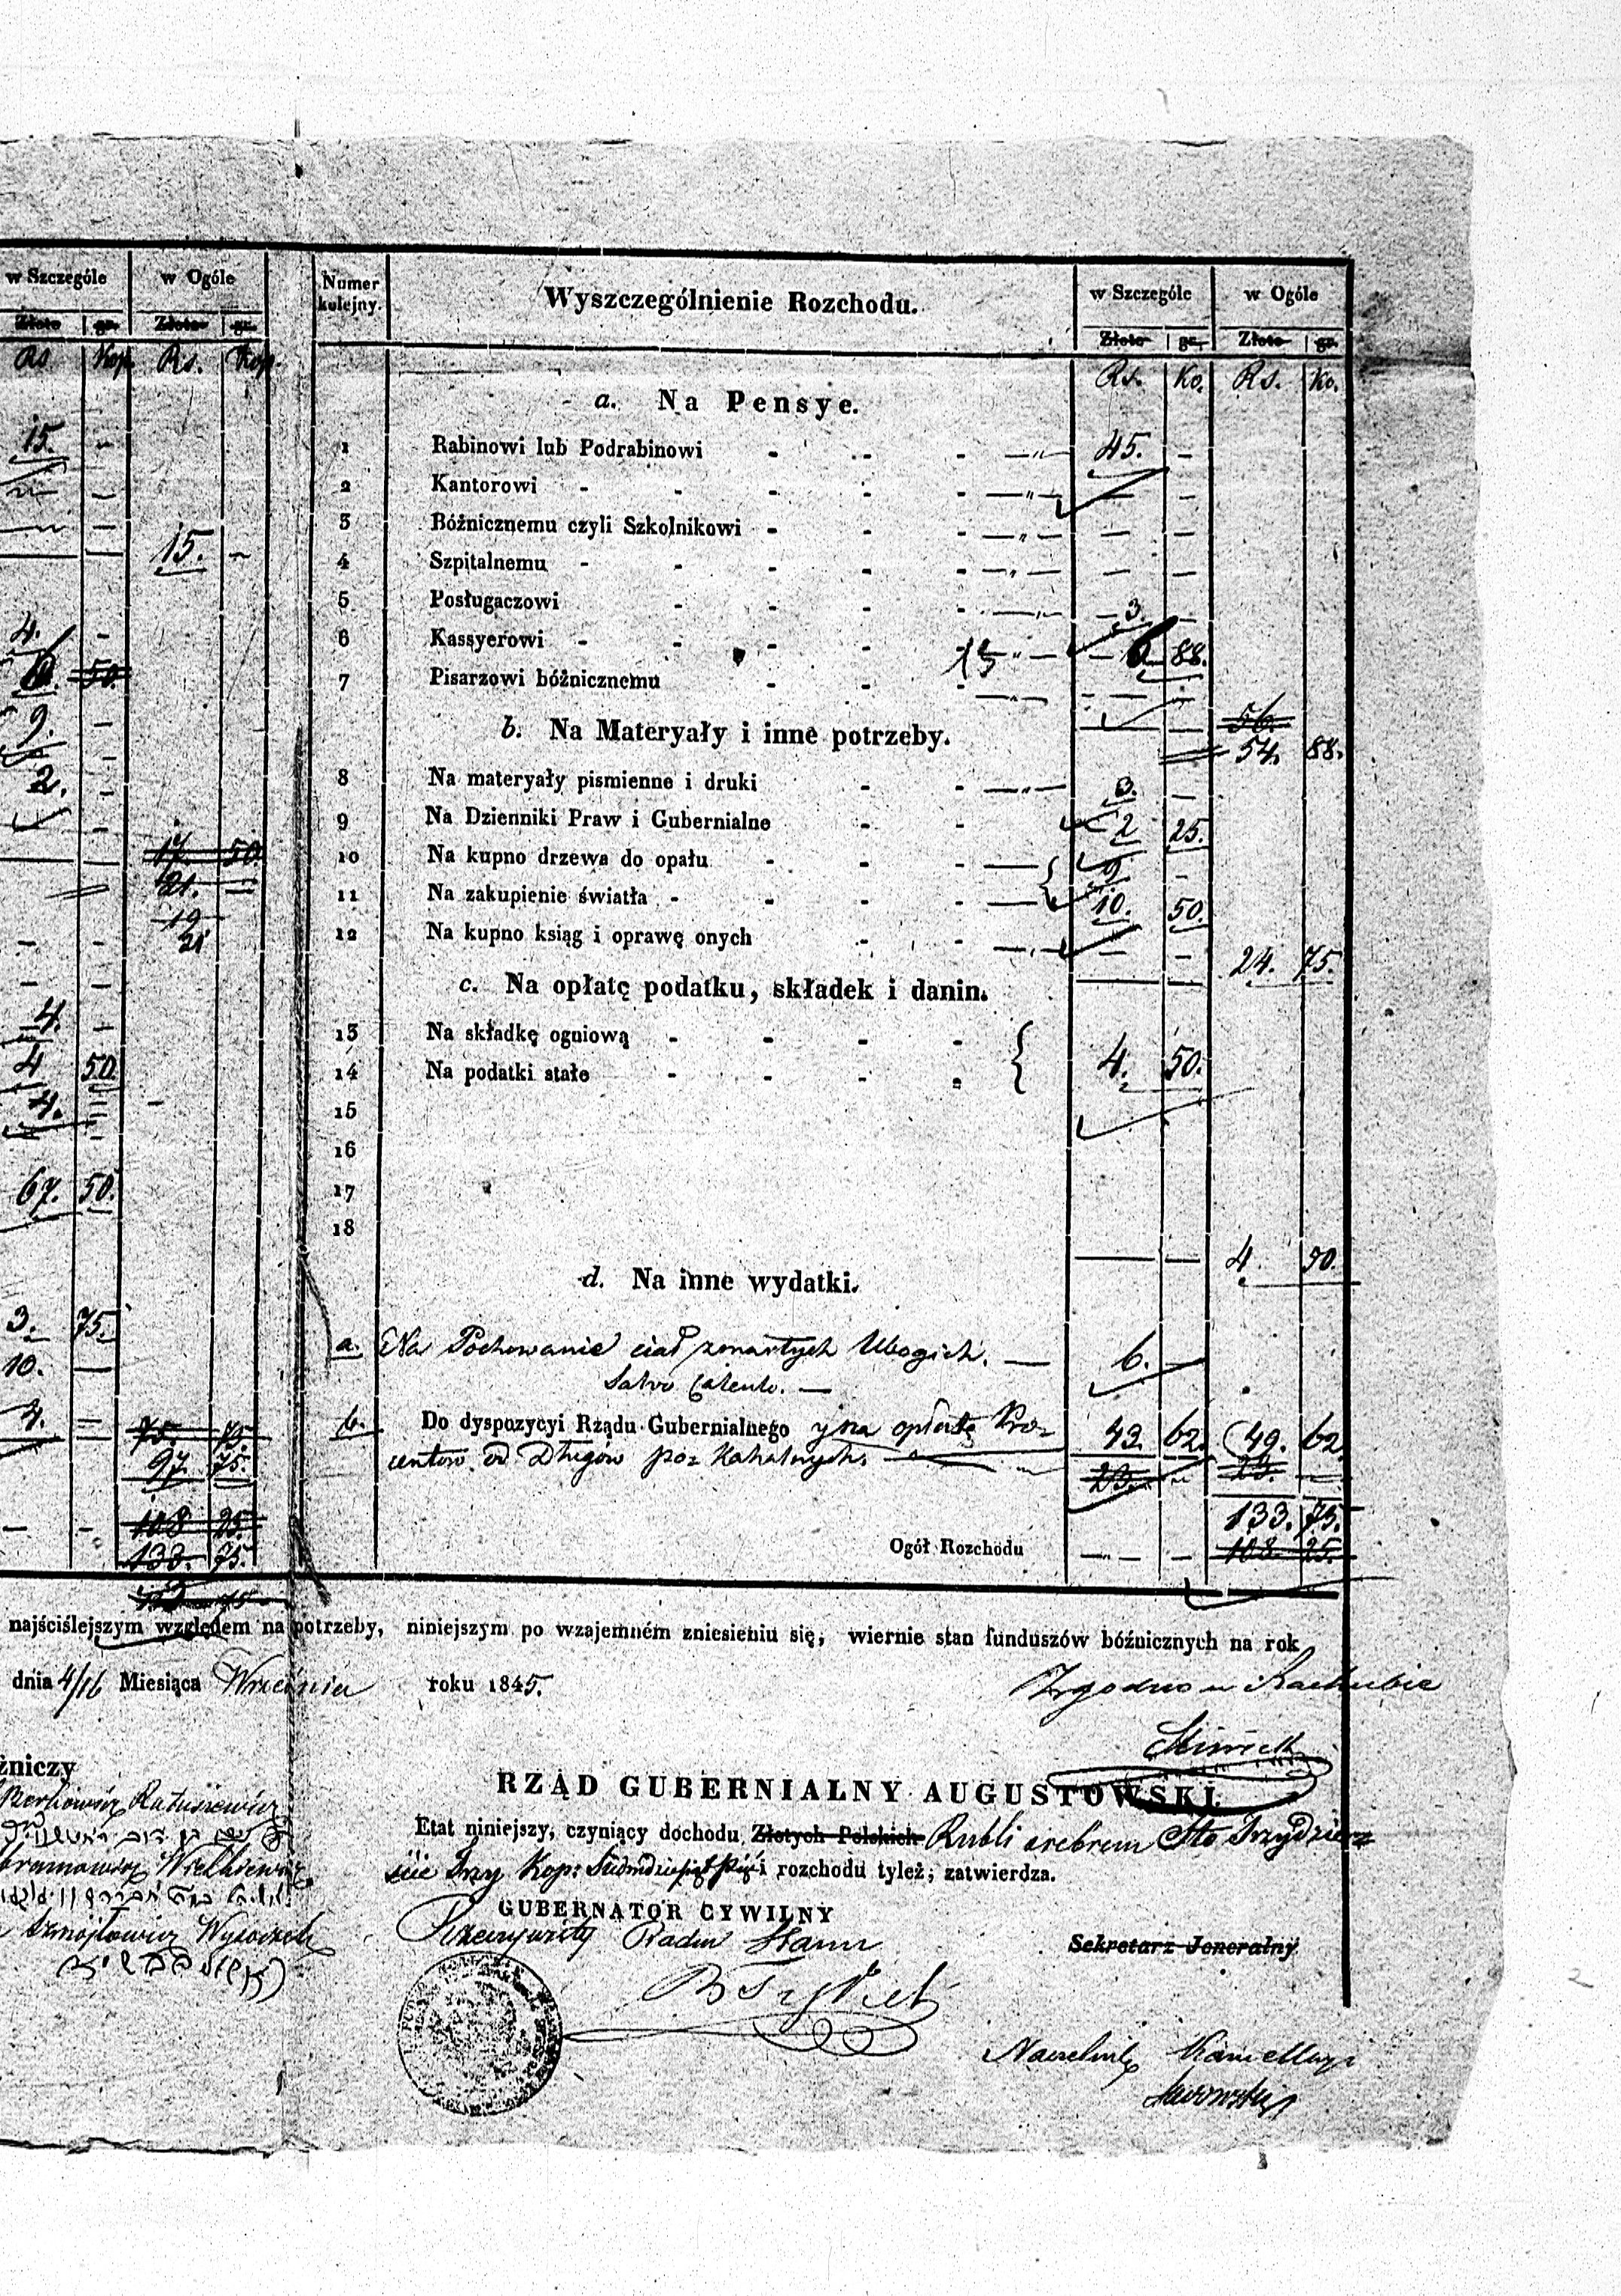 w Szczególe w Ogóle
Złote gr. Złote gr.
Rs Kop. Rs. Kop.
15. -
15. -
4. -
50.
9. -
2. -
17. 50
21. -
19
21
4. -
4 50
4. -
67. 50.
3. 75.
10. —
4. =
75. 75.
97. 75.
108 25.
133. 75.
Numer kolejny. Wyszczególnienie Rozchodu. w Szczególe w Ogóle
Złote gr. Złote gr.
Rs. Ko. Rs. Ko.
a. Na Pensye.
1 Rabinowi lub Podrabinowi - - - —"— 45. -
2 Kantorowi - - - - - —"— — -
3 Bóźnicznemu czyli Szkolnikowi - - - —"— — -
4 Szpitalnemu - - - - - —"— — -
5 Posługaczowi - - - - —"— 3. -
6 Kassyerowi - - - - 15 "— 6 88.
7 Pisarzowi bóźnicznemu - - - —"— — -
56.
54. 88.
b. Na Materyały i inne potrzeby.
8 Na materyały pismienne i druki - - —"— 3. -
9 Na Dzienniki Praw i Gubernialne - - 2 25.
10 Na kupno drzewa do opału - - - — 9 -
11 Na zakupienie światła - - - - — 10. 50.
12 Na kupno ksiąg i oprawę onych - - —"— — -
24. 75.
c. Na opłatę podatku, składek i danin.
13 Na składkę ogniową - - - -
14 Na podatki stałe - - - - 4. 50.
15
16
17
18
4. 50.
d. Na inne wydatki.
a. Na Pochowanie ciał zmarłych Ubogich. — 6. —
Salvo Calculo. —
b. Do dyspozycyi Rządu Gubernialnego y na opłatę Pro-
centow od Długów po- Kahalnych. 43. 62. 49. 62
23. - 23. —
133. 75.
Ogół Rozchodu —"— - 108. 25.
najściślejszym względem na potrzeby, niniejszym po wzajemném zniesieniu się, wiernie stan funduszów bóźnicznych na rok
dnia 4/16 Miesiąca Września roku 1845.
Zgodno w Rachubie
źniczy
Berkowicz Ratuszewicz
RZĄD GUBERNIALNY AUGUSTOWSKI.
Etat niniejszy, czyniący dochodu Złotych Polskich Rubli srebrem Sto Trzydzie-
ście Trzy Kop: Siedmdziesiąt Pięć i rozchodu tyleż; zatwierdza.
GUBERNATOR CYWILNY
Rzeczywisty Radca Stanu
Sekretarz Jeneralny
Naczelnik Kancellaryi